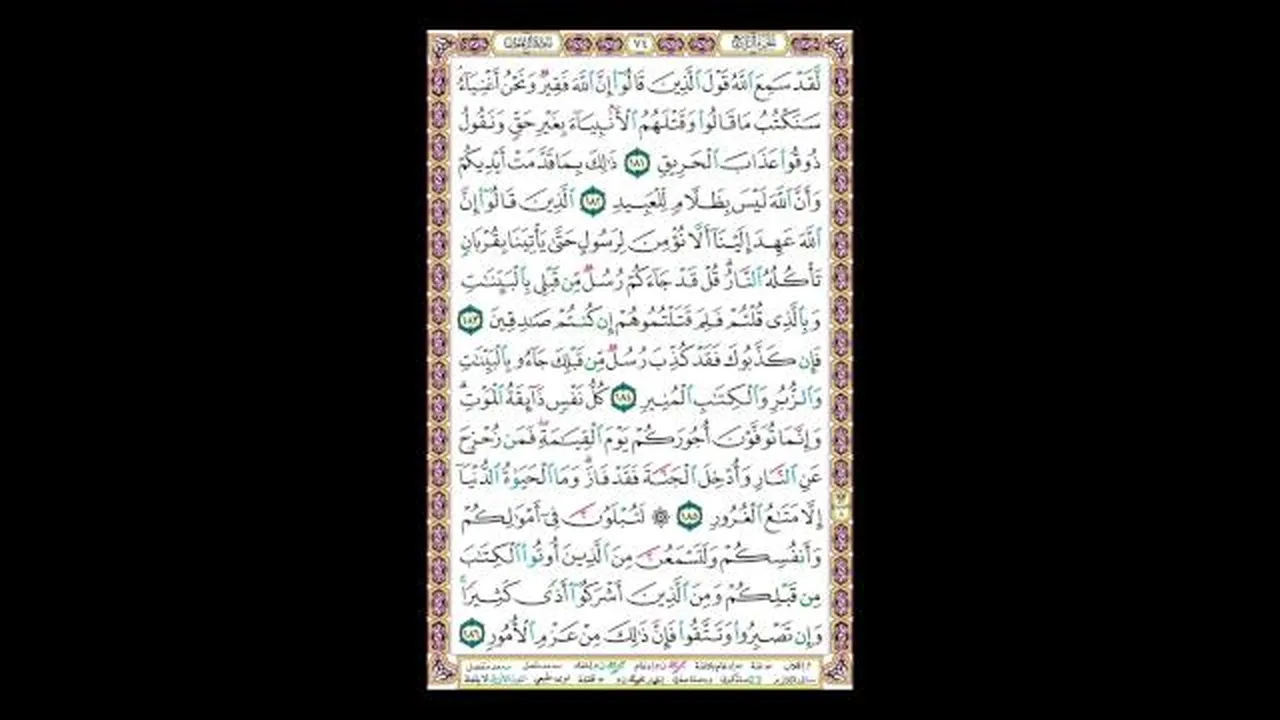 ٧٤
لَّقَدْ سَمِعَ ٱللَّهُ قَوْلَ ٱلَّذِينَ قَالُوٓا۟ إِنَّ ٱللَّهَ فَقِيرٌ وَنَحْنُ أَغْنِيَآءُ
سَنَكْتُبُ مَا قَالُوا۟ وَقَتْلَهُمُ ٱلْأَنۢبِيَآءَ بِغَيْرِ حَقٍّ وَنَقُولُ
ذُوقُوا۟ عَذَابَ ٱلْحَرِيقِ ١٨١ ذَٰلِكَ بِمَا قَدَّمَتْ أَيْدِيكُمْ
وَأَنَّ ٱللَّهَ لَيْسَ بِظَلَّامٍ لِّلْعَبِيدِ ١٨٢ ٱلَّذِينَ قَالُوٓا۟ إِنَّ
ٱللَّهَ عَهِدَ إِلَيْنَآ أَلَّا نُؤْمِنَ لِرَسُولٍ حَتَّىٰ يَأْتِيَنَا بِقُرْبَانٍ
تَأْكُلُهُ ٱلنَّارُ ۗ قُلْ قَدْ جَآءَكُمْ رُسُلٌ مِّن قَبْلِى بِٱلْبَيِّنَٰتِ
وَبِٱلَّذِى قُلْتُمْ فَلِمَ قَتَلْتُمُوهُمْ إِن كُنتُمْ صَٰدِقِينَ ١٨٣
فَإِن كَذَّبُوكَ فَقَدْ كُذِّبَ رُسُلٌ مِّن قَبْلِكَ جَآءُو بِٱلْبَيِّنَٰتِ
وَٱلزُّبُرِ وَٱلْكِتَٰبِ ٱلْمُنِيرِ ١٨٤ كُلُّ نَفْسٍ ذَآئِقَةُ ٱلْمَوْتِ ۗ
وَإِنَّمَا تُوَفَّوْنَ أُجُورَكُمْ يَوْمَ ٱلْقِيَٰمَةِ ۖ فَمَن زُحْزِحَ
عَنِ ٱلنَّارِ وَأُدْخِلَ ٱلْجَنَّةَ فَقَدْ فَازَ ۗ وَمَا ٱلْحَيَوٰةُ ٱلدُّنْيَآ
إِلَّا مَتَٰعُ ٱلْغُرُورِ ١٨٥ ۞ لَتُبْلَوُنَّ فِىٓ أَمْوَٰلِكُمْ
وَأَنفُسِكُمْ وَلَتَسْمَعُنَّ مِنَ ٱلَّذِينَ أُوتُوا۟ ٱلْكِتَٰبَ
مِن قَبْلِكُمْ وَمِنَ ٱلَّذِينَ أَشْرَكُوٓا۟ أَذًى كَثِيرًا ۚ
وَإِن تَصْبِرُوا۟ وَتَتَّقُوا۟ فَإِنَّ ذَٰلِكَ مِنْ عَزْمِ ٱلْأُمُورِ ١٨٦